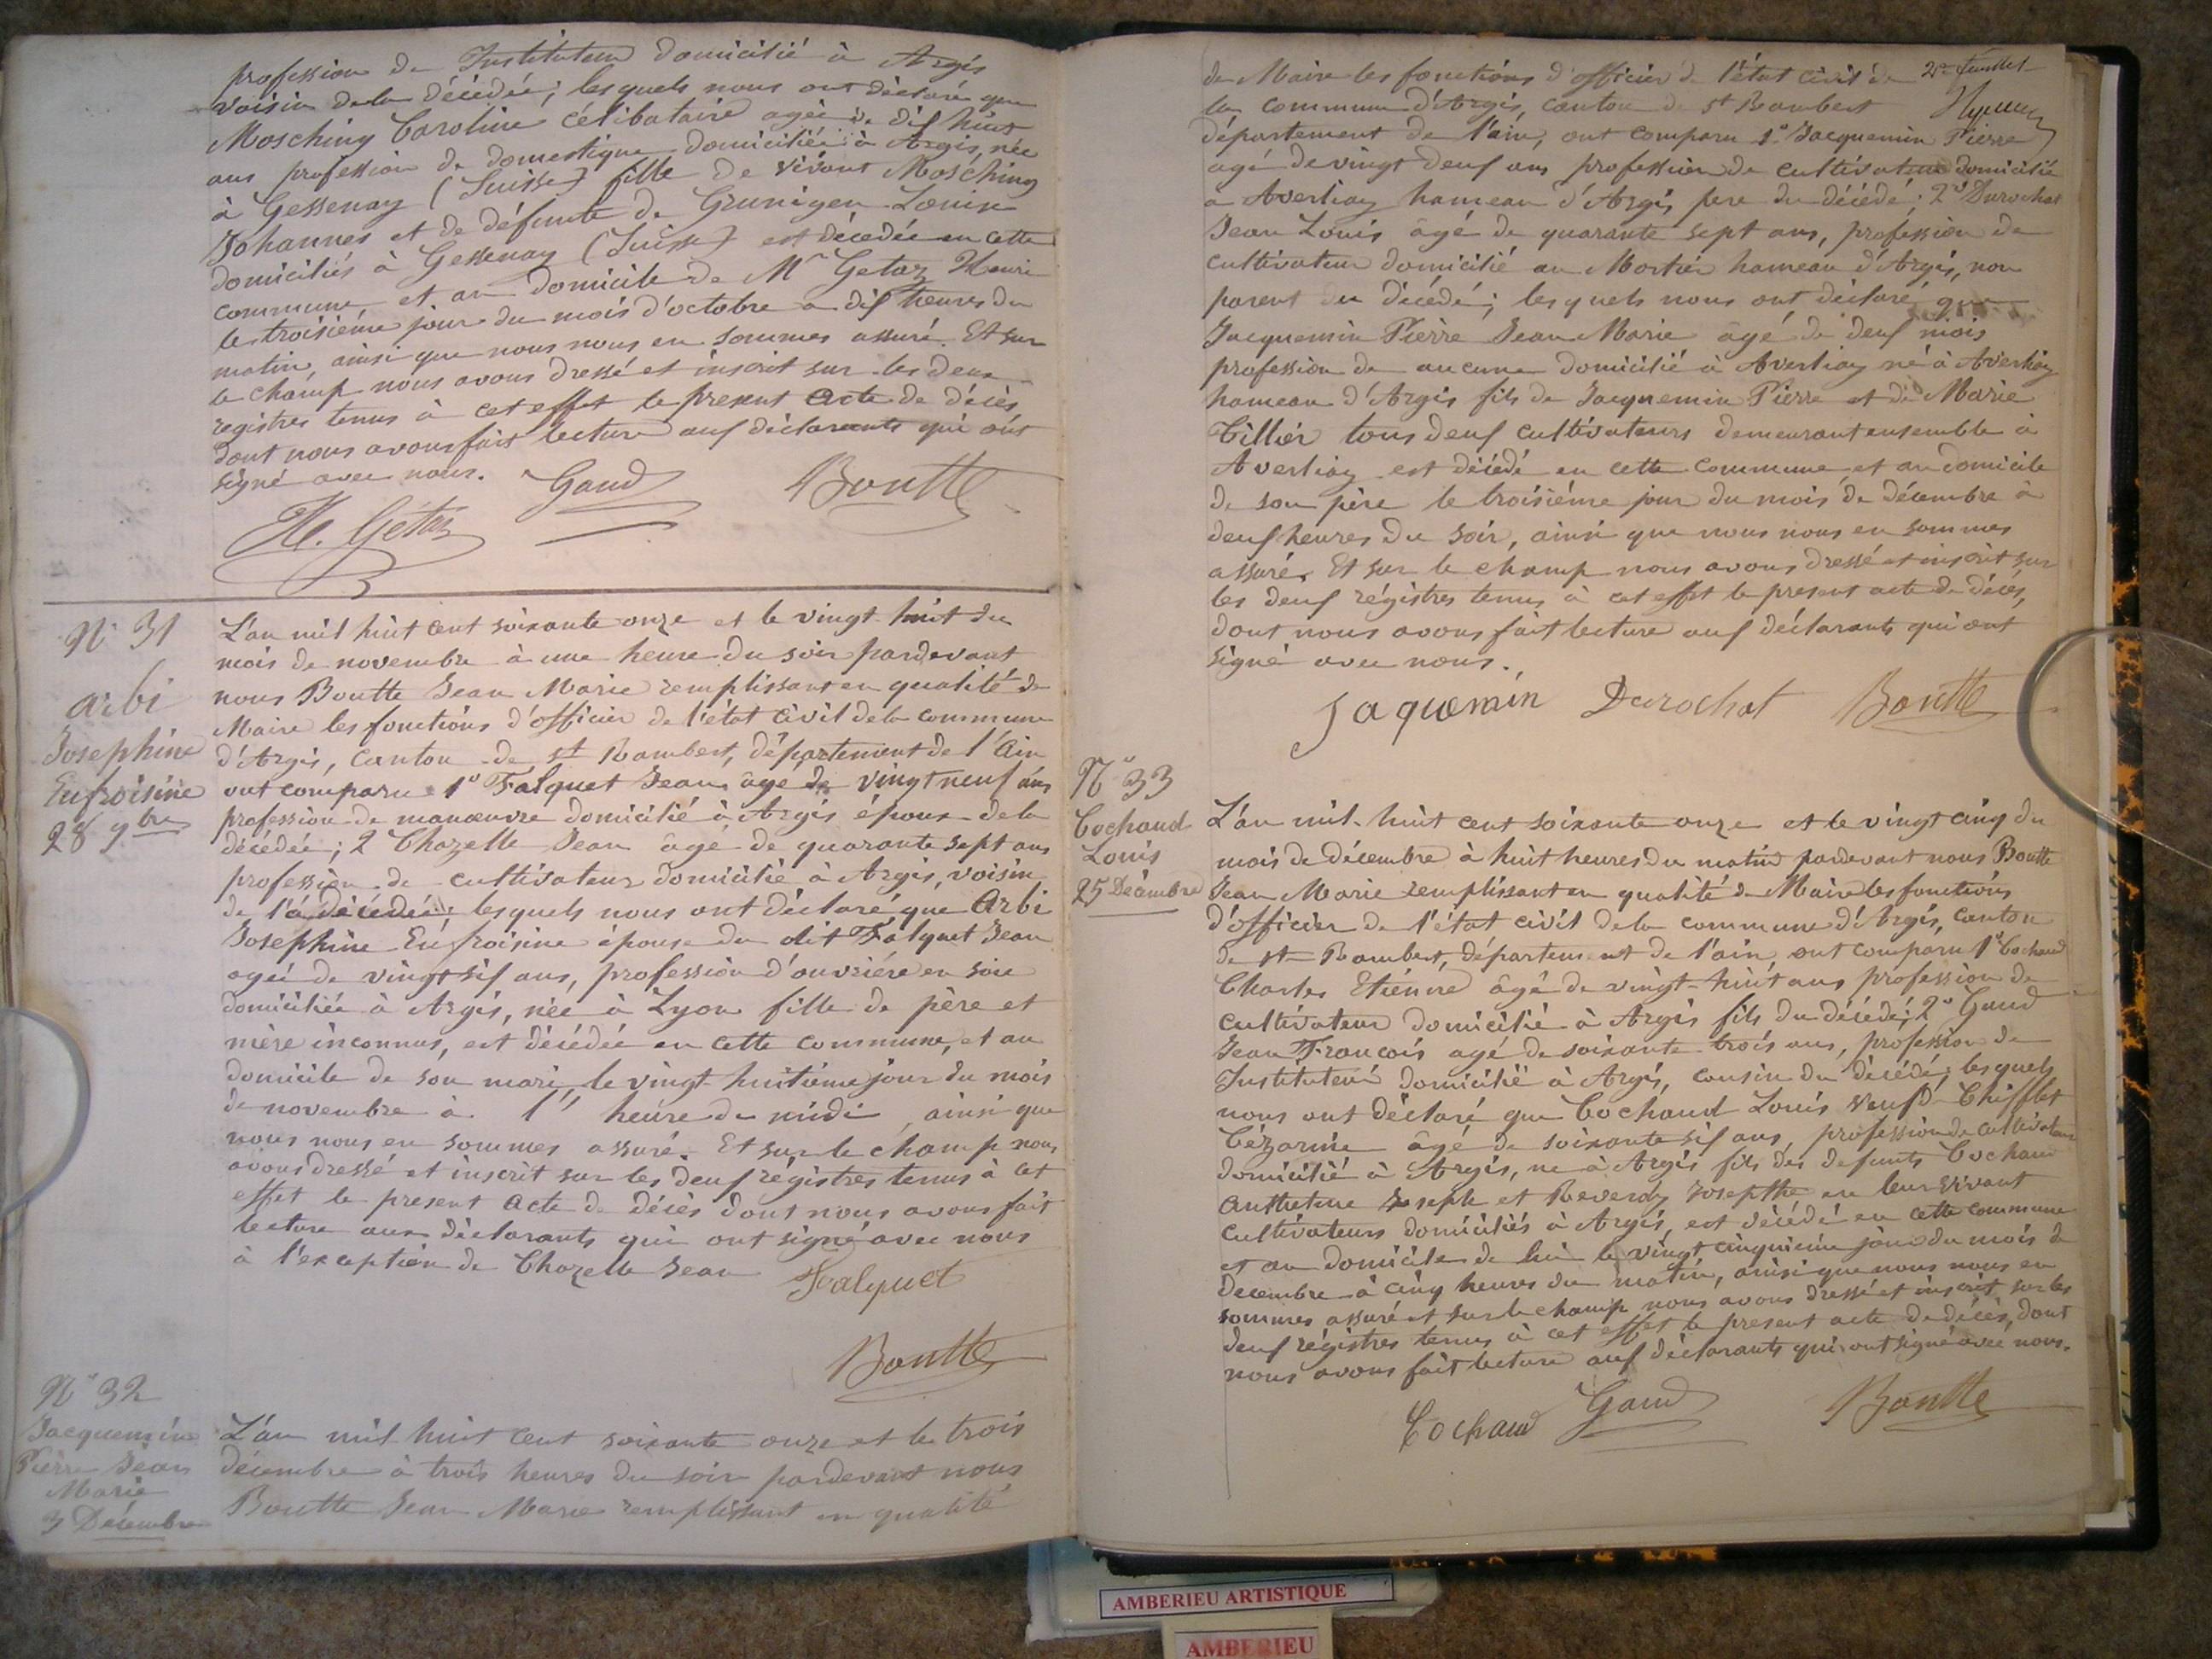 profession de Instituteur domicilié à Argis
voisin de la décédée; lesquels nous ont déclaré que
Mosching Caroline célibataire agée de dix huit
ans profession de domestique domiciliée à Argis, née
à Gessenay (Suisse) fille de vivant Mosching
Johannes et de défunte de Grunigen Louise
domiciliés à Gessenay (Suisse) est décédée en cette
commune et au domicile de Mr Getaz Henri
le troisième jour du mois d'octobre à dix heures du
matin, ainsi que nous nous en sommes assuré. Et sur
le champ nous avons dressé et inscrit sur les deux
registres tenus à cet effet le present acte de décès
dont nous avons fait lecture aux déclarants qui ont
signé avec nous. Gaud Boutte
H. Getaz
N° 31
Arbi
Josephine
Eufroisine
28 9bre
L'an mil huit cent soixante onze et le vingt-huit du
mois de novembre à une heure du soir pardevant
nous Boutte Jean Marie remplissant en qualité de
Maire les fonctions d'officier de l'état civil de la commune
d'Argis, Canton de St Rambert, département de l'Ain
ont comparu 1° Falquet Jean âgé de vingt neuf ans
profession de manœuvre domicilié à Argis époux de la
décédée; 2 Chazelle Jean âgé de quarante sept ans
profession de cultivateur domicilié à Argis, voisin
de la décédée; lesquels nous ont déclaré que Arbi
Josephine Eufroisine épouse du dit Falquet Jean
agée de vingt six ans, profession d'ouvrière en soie
domiciliée à Argis, née à Lyon fille de père et
mère inconnus, est décédée en cette commune, et au
domicile de son mari, le vingt-huitième jour du mois
de novembre à 1 heure de midi, ainsi que
nous nous en sommes assuré. Et sur le champ nous
avons dressé et inscrit sur les deux régistres tenus à cet
effet le present acte de décès dont nous avons fait
lecture aux déclarants qui ont signé avec nous
à l'exception de Chazelle Jean Falquet
Boutte
N° 32
Jacquemin
Pierre Jean
Marie
3 Décembre
L'an mil huit cent soixante onze et le trois
décembre à trois heures du soir pardevant nous
Boutte Jean Marie remplissant en qualité
2e feuillet
de Maire les fonctions d'officier de l'état civil de
la commune d'Argis, canton de St Rambert
département de l'ain, ont comparu 1° Jacquemin Pierre
agé de vingt deux ans profession de cultivateur domicilié
à Averliaz hameau d'Argis pere du décédé; 2° Durochat
Jean Louis âgé de quarante sept ans, profession de
cultivateur domicilié au Mortier hameau d'Argis, non
parent du décédé; lesquels nous ont déclaré que
Jacquemin Pierre Jean Marie âgé de deux mois
profession de aucune domicilié à Averliaz né à Averliaz
hameau d'Argis fils de Jacquemin Pierre et de Marie
Tillier tous deux cultivateurs demeurant ensemble à
Averliaz est décédé en cette commune et au domicile
de son père le troisième jour du mois de décembre à
deux heures du soir, ainsi que nous nous en sommes
assuré. Et sur le champ nous avons dressé et inscrit sur
les deux régistres tenus à cet effet le present acte de décès,
dont nous avons fait lecture aux déclarants qui ont
signé avec nous.
Jaquemin Durochat Boutte
N° 33
Cochaud
Louis
25 Décembre
L'an mil huit cent soixante onze et le vingt cinq du
mois de décembre à huit heures du matin pardevant nous Boutte
Jean Marie remplissant en qualité de Maire les fonctions
d'officier de l'état civil de la commune d'Argis, canton
de St Rambert, département de l'ain, ont comparu 1° Cochaud
Charles Etienne âgé de vingt-huit ans profession de
cultivateur domicilié à Argis fils du décédé; 2° Gaud
Jean François agé de soixante trois ans, profession de
Instituteur domicilié à Argis, cousin du décédé; lesquels
nous ont déclaré que Cochaud Louis veuf de Chifflet
Cézarine âgé de soixante six ans, profession de cultivateur
domicilié à Argis, né à Argis fils des defunts Cochaud
Joseph et Reverdy Josepthe en leur vivant
cultivateurs domiciliés à Argis, est décédé en cette commune
et au domicile de lui le vingt cinquième jour du mois de
Decembre à cinq heures du matin, ainsi que nous nous en
sommes assuré et sur le champ nous avons dressé et inscrit sur les
deux régistres tenus à cet effet le present acte de décès, dont
nous avons fait lecture aux déclarants qui ont signé avec nous.
Cochaud Gaud Boutte
AMBERIEU ARTISTIQUE
AMBERIEU